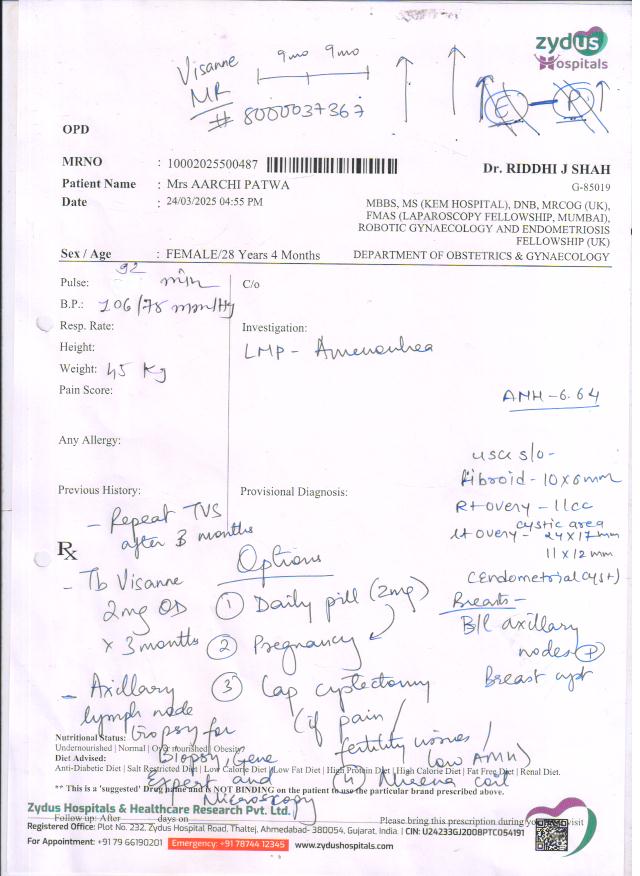 zydus
Hospitals
9mo 9mo
Visanne
MR
# 8000037367
E - P
OPD
MRNO : 10002025500487
Dr. RIDDHI J SHAH
G-85019
Patient Name : Mrs AARCHI PATWA
Date : 24/03/2025 04:55 PM
MBBS, MS (KEM HOSPITAL), DNB, MRCOG (UK),
FMAS (LAPAROSCOPY FELLOWSHIP, MUMBAI),
ROBOTIC GYNAECOLOGY AND ENDOMETRIOSIS
FELLOWSHIP (UK)
DEPARTMENT OF OBSTETRICS & GYNAECOLOGY
Sex / Age : FEMALE/28 Years 4 Months
Pulse: 92 min
C/o
B.P.: 106/78 mm/Hg
Resp. Rate:
Investigation:
Height:
LMP - Amenorrhea
Weight: 45 Kg
Pain Score:
AMH - 6.64
Any Allergy:
USG s/o -
fibroid - 10x6mm
Previous History:
Provisional Diagnosis:
Rt overy - 11cc
cystic area
Lt overy - 24x17mm
11x12mm
(Endometrial cyst)
- Repeat TVS
after 3 months
Rx
Options
- Tb Visanne
2mg OD
x 3 months
① Daily pill (2mg)
② Pregnancy
③ Lap cystectomy
(if pain /
fertility issues /
low AMH)
Breasts -
B/L axillary
nodes (+)
Breast cyst
- Axillary
lymph node
Biopsy for
Biopsy, Gene
Expert and
Microscopy
Nutritional Status:
Undernourished | Normal | Over nourished | Obesity
Diet Advised:
Anti-Diabetic Diet | Salt Restricted Diet | Low Calorie Diet | Low Fat Diet | High Protein Diet | High Calorie Diet | Fat Free Diet | Renal Diet.
** This is a 'suggested' Drug name and is NOT BINDING on the patient to use the particular brand prescribed above.
Zydus Hospitals & Healthcare Research Pvt. Ltd.
Follow up: After days on
Please bring this prescription during your visit
Registered Office: Plot No. 232, Zydus Hospital Road, Thaltej, Ahmedabad- 380054, Gujarat, India. | CIN: U24233GJ2008PTC054191
For Appointment: +91 79 66190201 Emergency: +91 78744 12345 www.zydushospitals.com